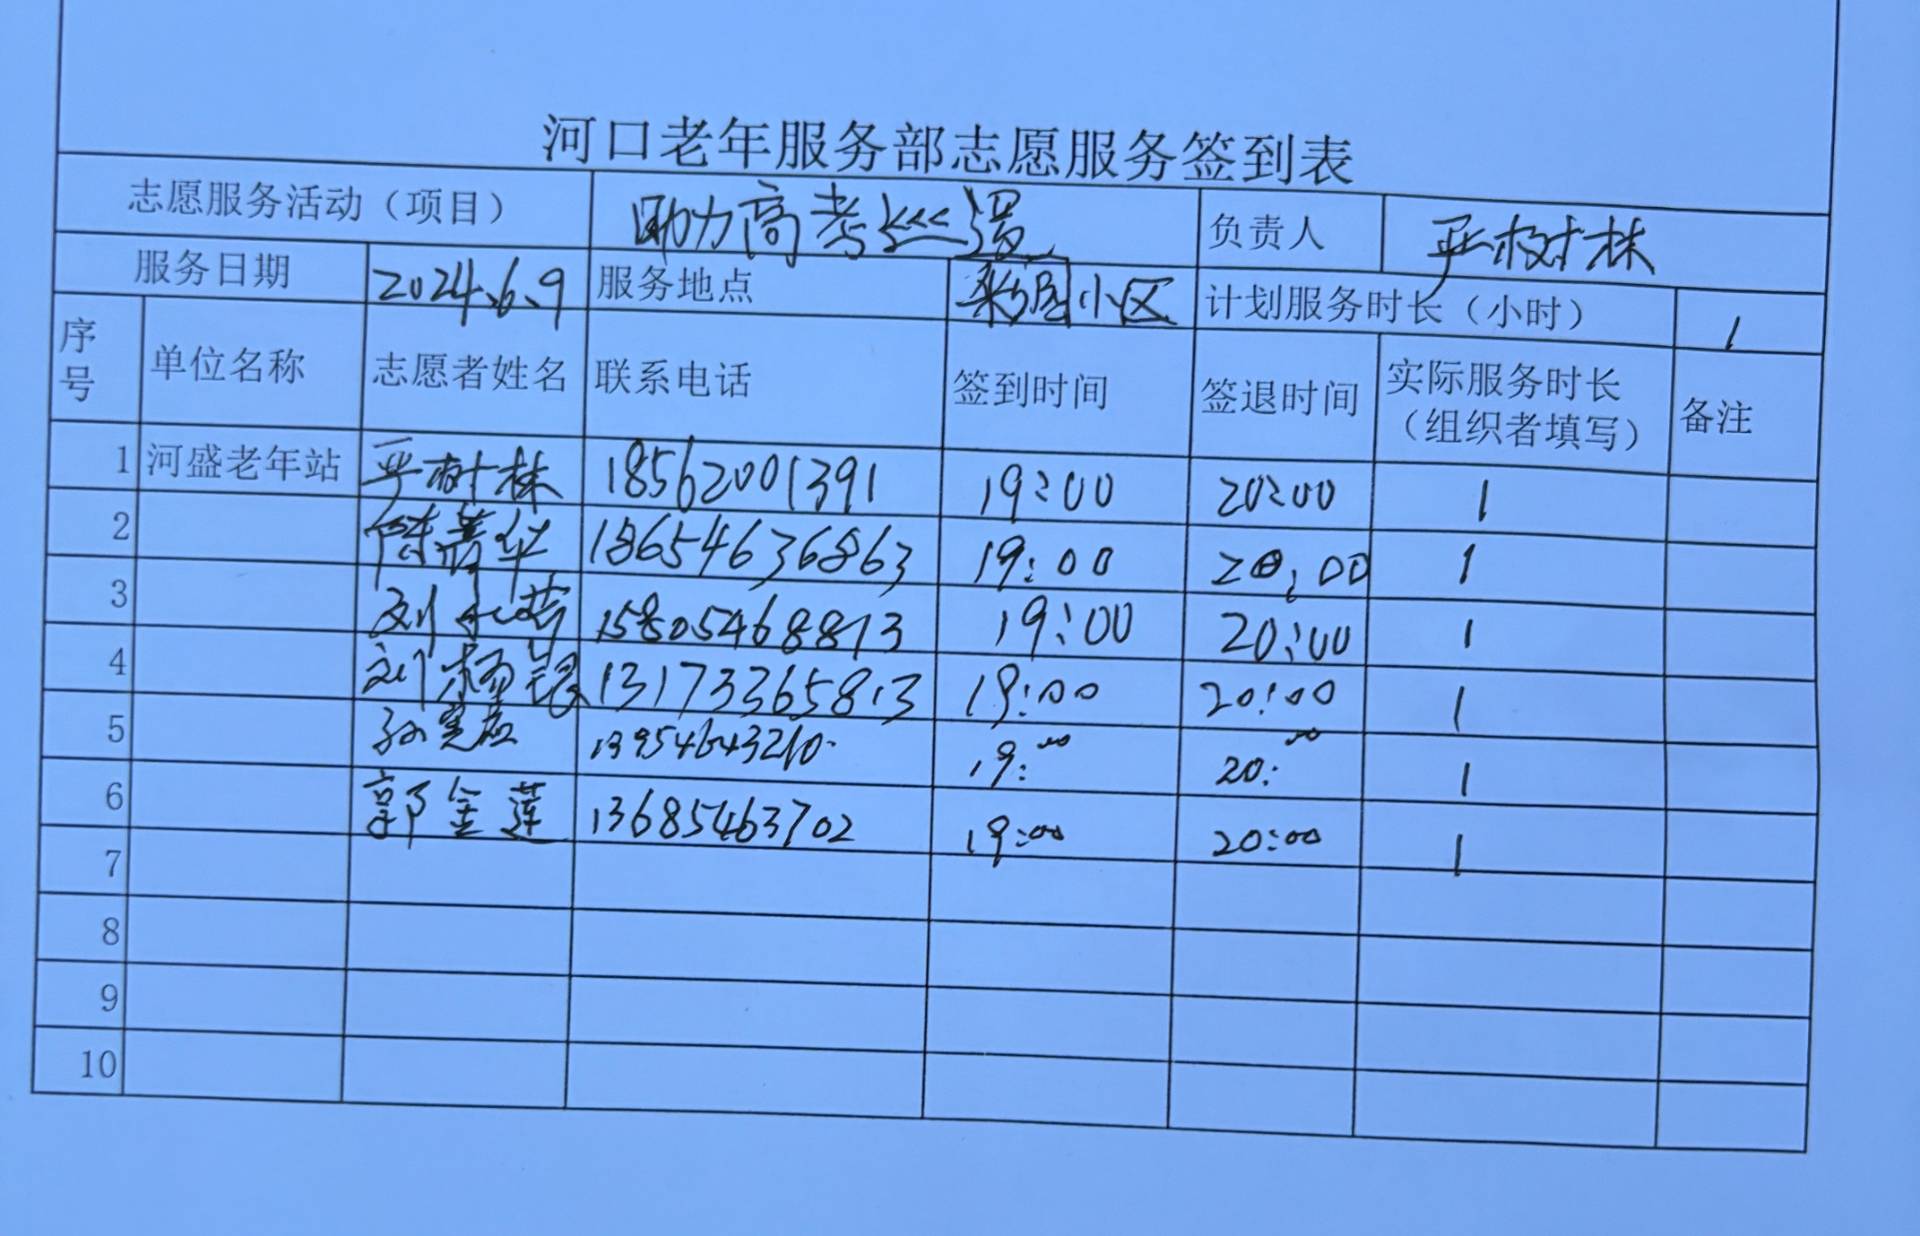 河口老年服务部志愿服务签到表
志愿服务活动（项目） 助力高考巡逻 负责人 严树林
服务日期 2024.6.9 服务地点 小区 计划服务时长（小时） 1
序号 单位名称 志愿者姓名 联系电话 签到时间 签退时间 实际服务时长（组织者填写） 备注
1 河盛老年站 严树林 18562001391 19:00 20:00 1
2 陈菁华 18654636863 19:00 20:00 1
3 刘 15805468813 19:00 20:00 1
4 刘杨银 13173365813 19:00 20:00 1
5 孙宪应 13954643210 19:00 20:00 1
6 郭金莲 13685463702 19:00 20:00 1
7
8
9
10